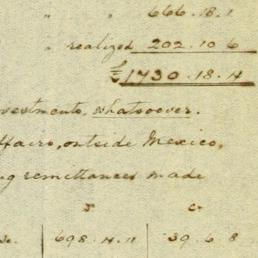 " " 666.18.1
" realized 202.10 6
£1730.18.4
vestments, whatsoever.
ffairs, outside Mexico,
g remittances made
698.4.11 39.6.8